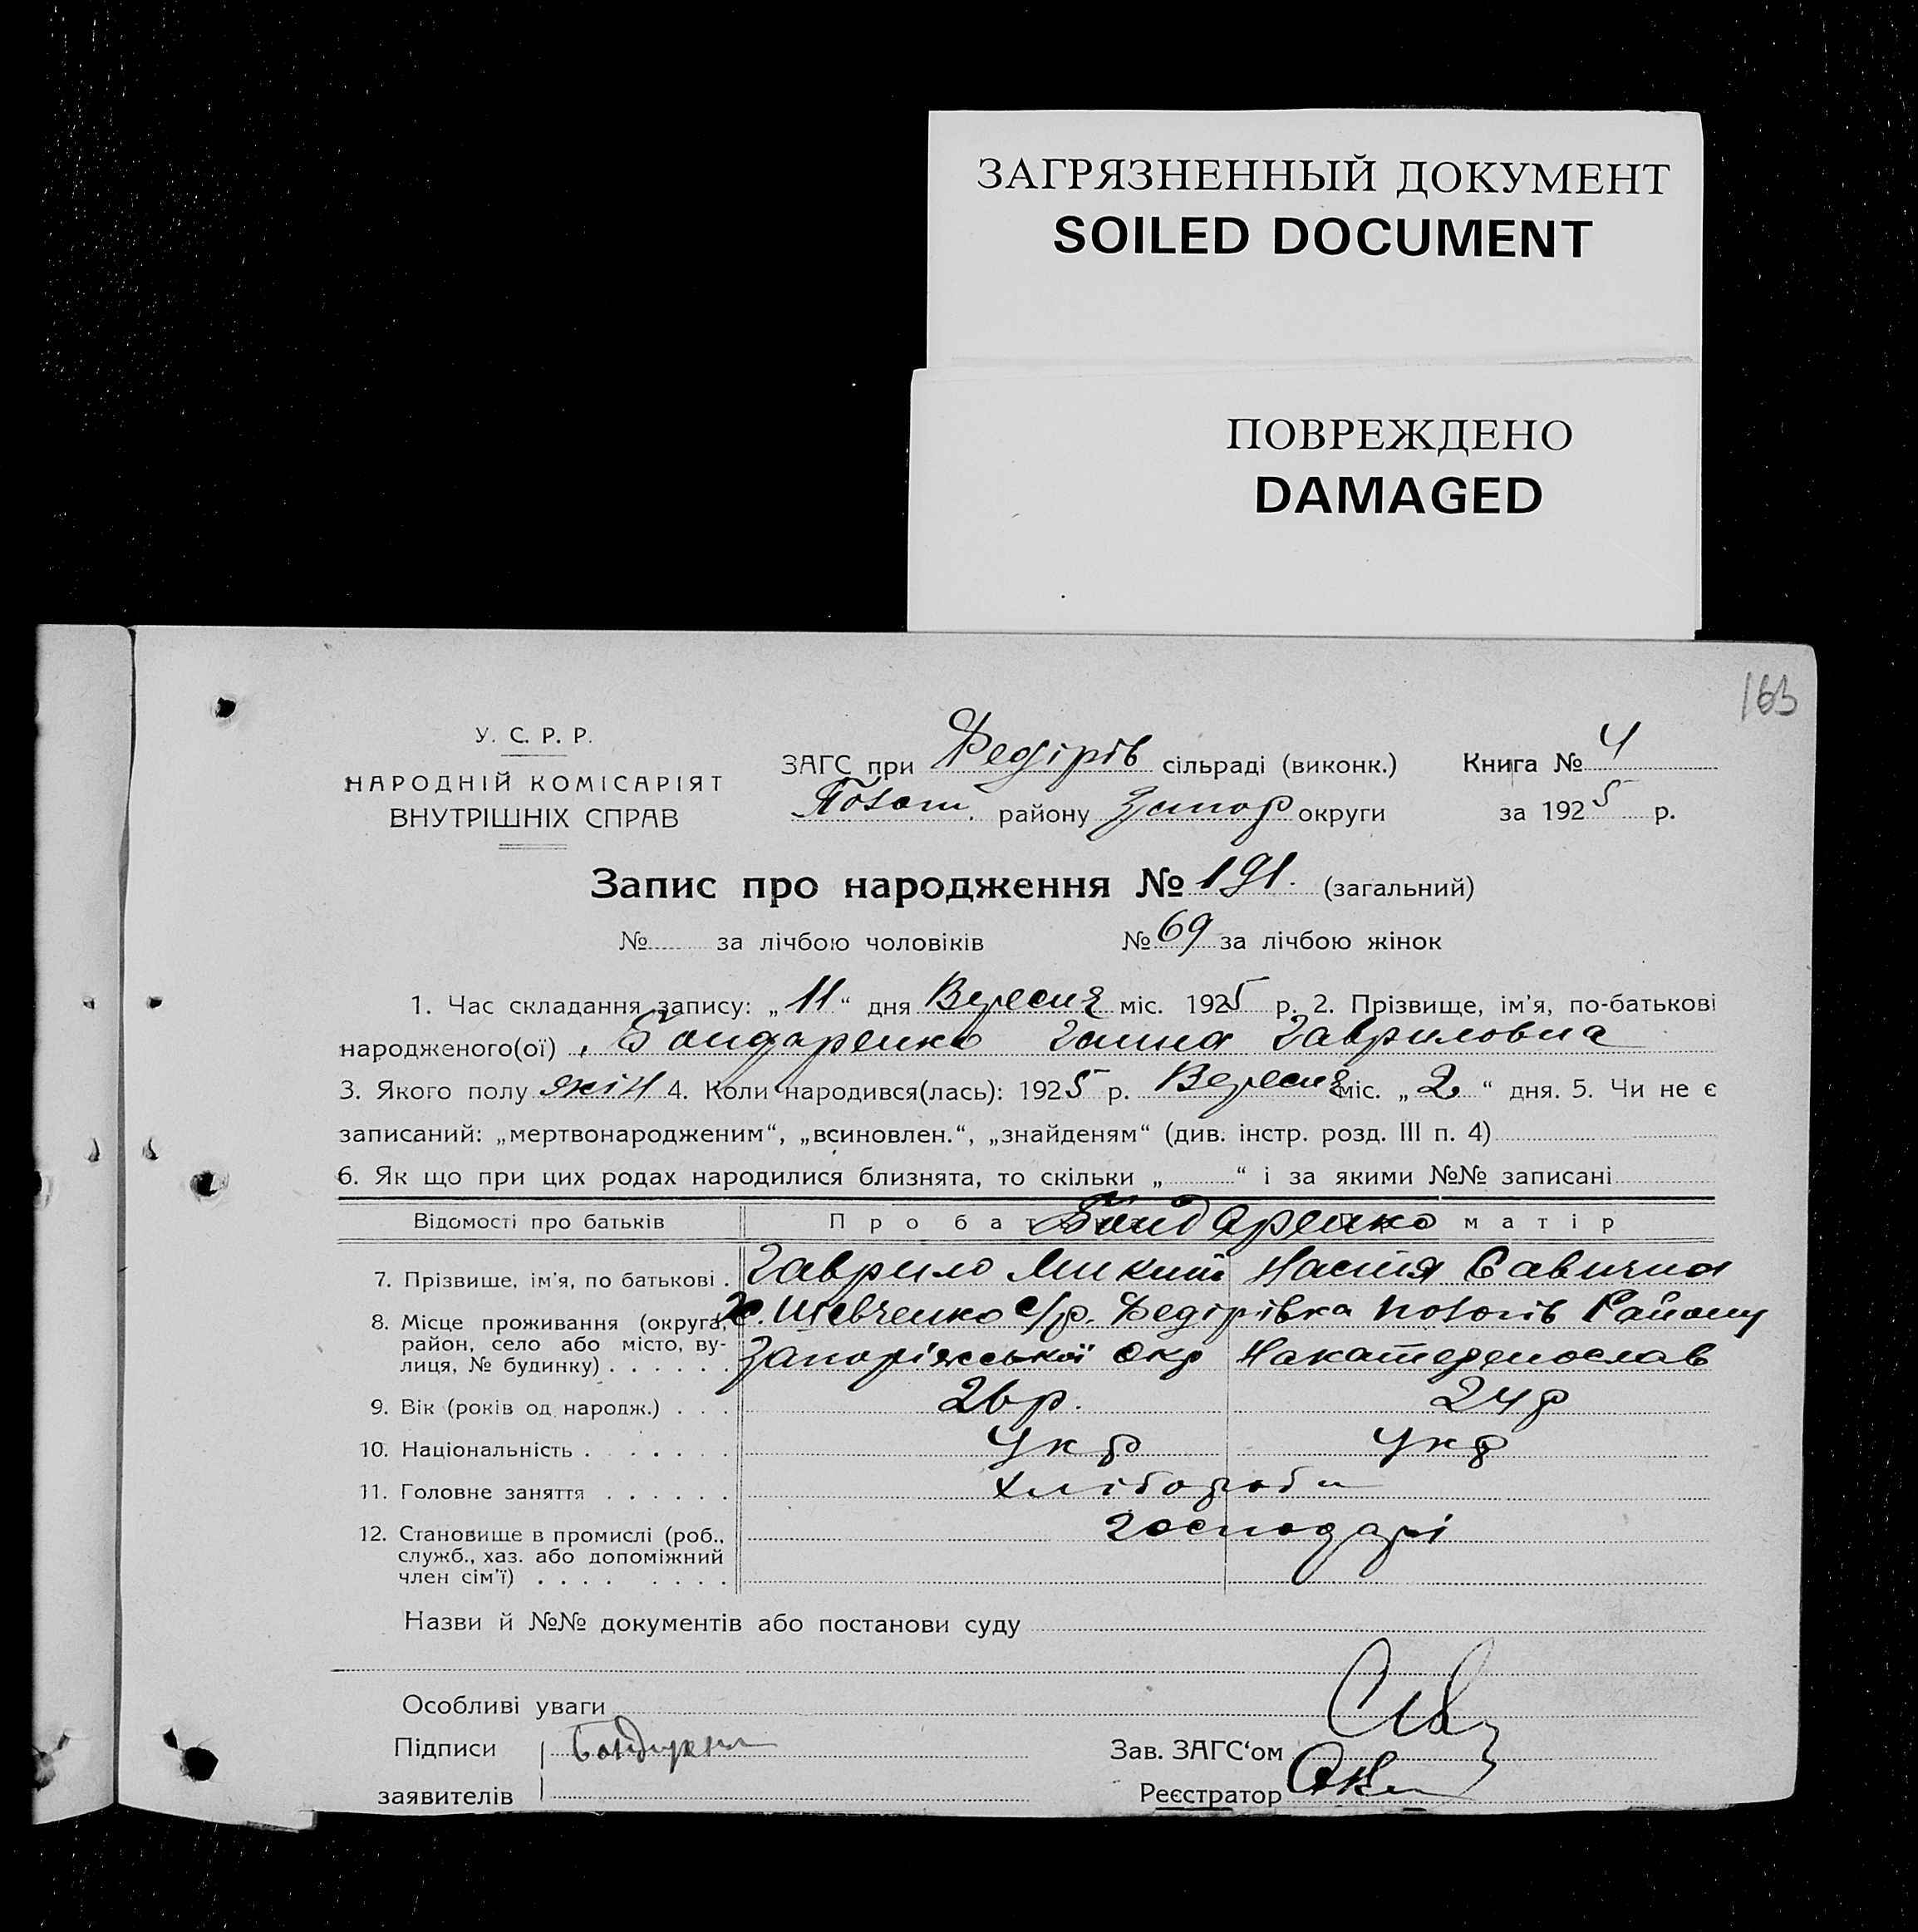 ЗАГРЯЗНЕННЫЙ ДОКУМЕНТ
SOILED DOCUMENT
ПОВРЕЖДЕНО
DAMAGED
163
У. С. Р. Р.
НАРОДНІЙ КОМІСАРІЯТ
ВНУТРІШНІХ СПРАВ
ЗАГС при Федірів сільраді (виконк.) Книга № 4
району Запор округи за 1925 р.
Запис про народження № 191. (загальний)
№ за лічбою чоловіків № 69 за лічбою жінок
1. Час складання запису: „11“ дня Вересня міс. 1925 р. 2. Прізвище, ім'я, по-батькові
народженого(ої) Бондаренко Ганна Гавриловна
3. Якого полу жін 4. Коли народився(лась): 1925 р. Вересня міс. „2“ дня. 5. Чи не є
записаний: „мертвонародженим“, „всиновлен.“, „знайденям“ (див. інстр. розд. III п. 4)
6. Як що при цих родах народилися близнята, то скільки „ “ і за якими №№ записані
Відомості про батьків Про бат Бондаренко матір
7. Прізвище, ім'я, по батькові . Гаврило Микит Настя Савична
8. Місце проживання (округа, х. Шевченко с/р. Федірівка Пологів Району
район, село або місто, ву-
лиця, № будинку) . . . . . . Запоріжської Окр
9. Вік (років од народж.) . . . 26 р. 24 р
10. Національність . . . . . . Укр Укр
11. Головне заняття . . . . . . Хлібороби
12. Становище в промислі (роб., господарі
служб., хаз. або допоміжний
член сім'ї) . . . . . . . .
Назви й №№ документів або постанови суду
Особливі уваги
Підписи
Зав. ЗАГС'ом
заявителів
Реєстратор